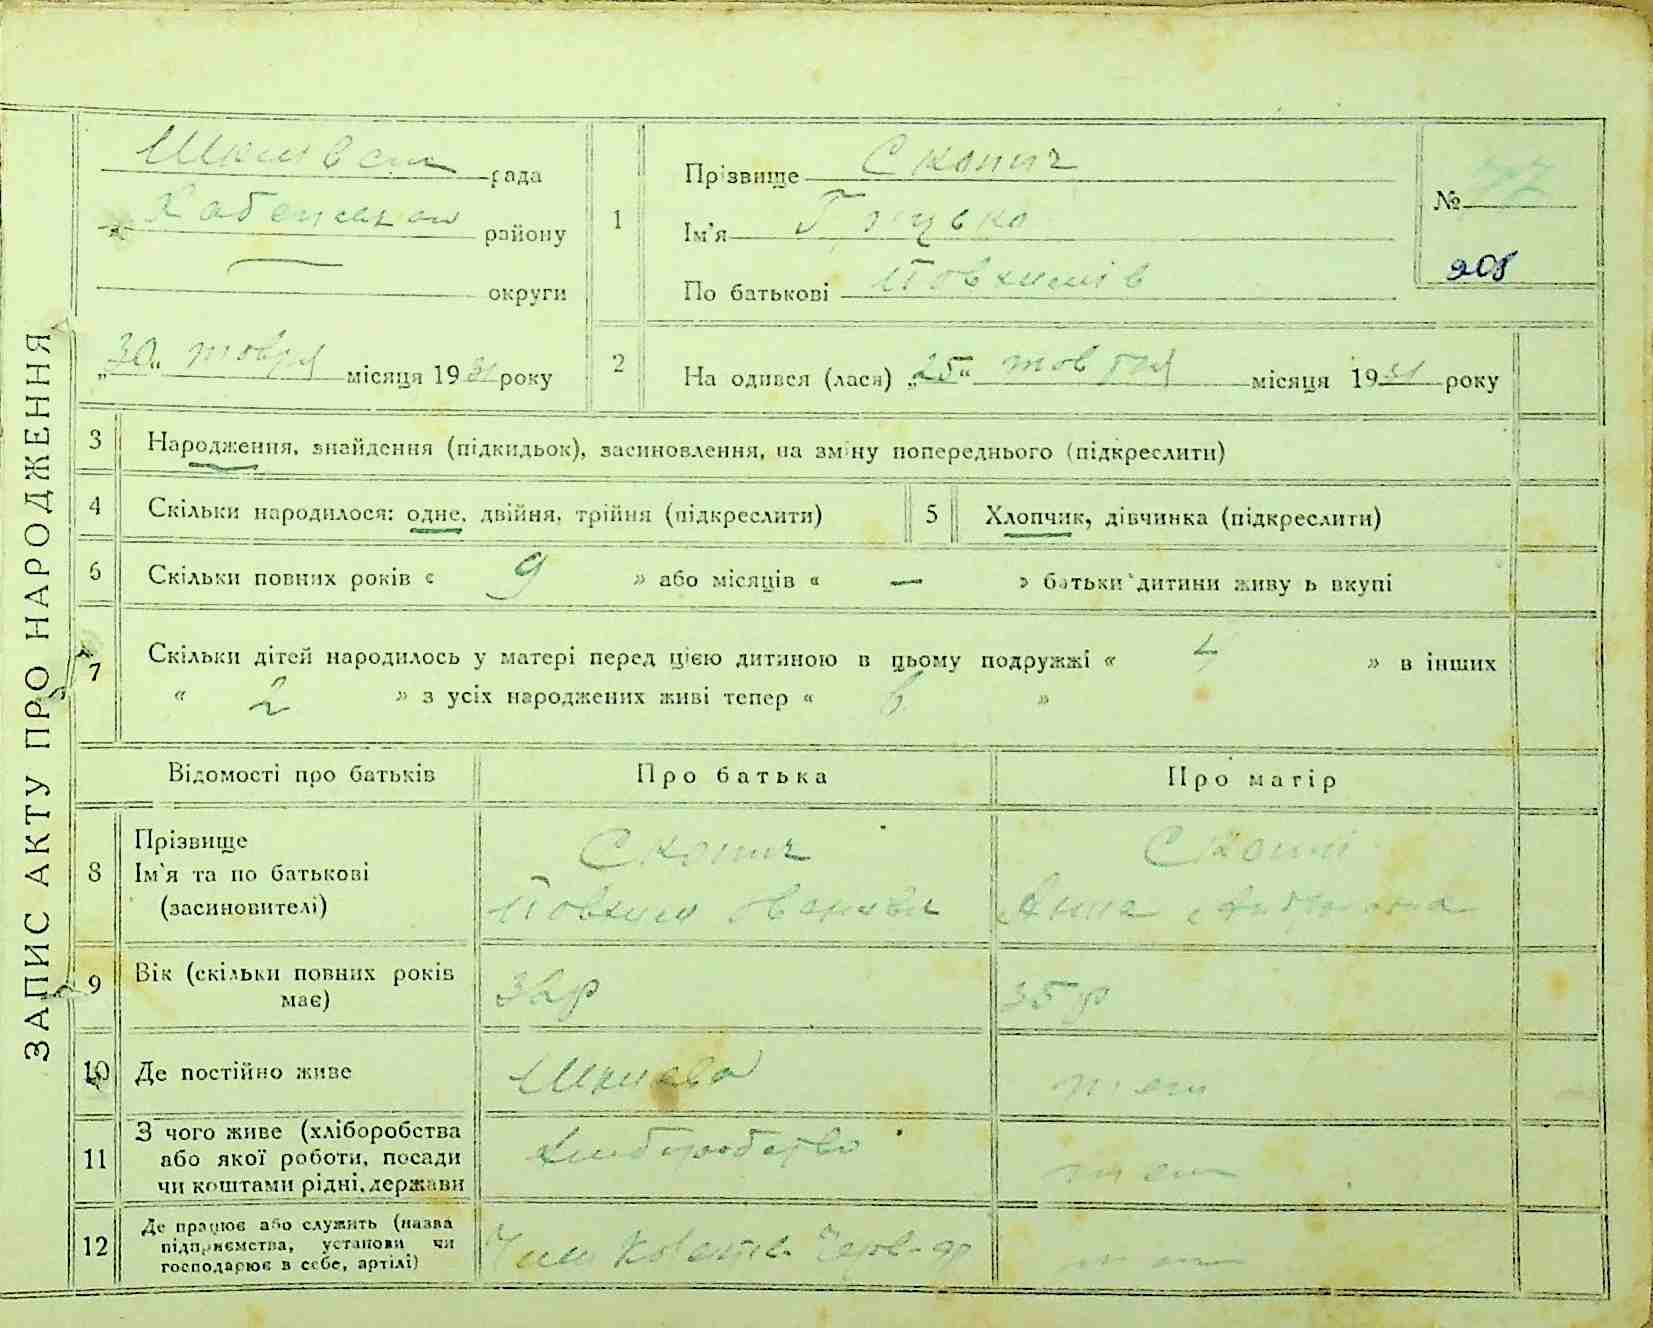 ЗАПИС АКТУ ПРО НАРОДЖЕННЯ
рада
району
округи
„30“ товтня місяця 1931 року
1
Прізвище Скопич
Ім'я Грицько
По батькові Повхимів
№ 77
208
2
На одився (лася) „25“ товтня місяця 1931 року
3 Народження, знайдення (підкидьок), засиновлення, на зміну попереднього (підкреслити)
4 Скільки народилося: одне, двійня, трійня (підкреслити)
5 Хлопчик, дівчинка (підкреслити)
6 Скільки повних років « 9 » або місяців « — » батьки дитини живу ь вкупі
7 Скільки дітей народилось у матері перед цією дитиною в цьому подружжі « 4 » в інших
« 2 » з усіх народжених живі тепер « 6 »
Відомості про батьків Про батька Про матір
8 Прізвище
Ім'я та по батькові
(засиновителі)
Скопич
Повхим
Скопич
Анна
9 Вік (скільки повних років
має)
35 р
10 Де постійно живе
11 З чого живе (хліборобства
або якої роботи, посади
чи коштами рідні, держави
Хліборобство
12 Де працює або служить (назва
підприємства, установи чи
господарює в себе, артілі)